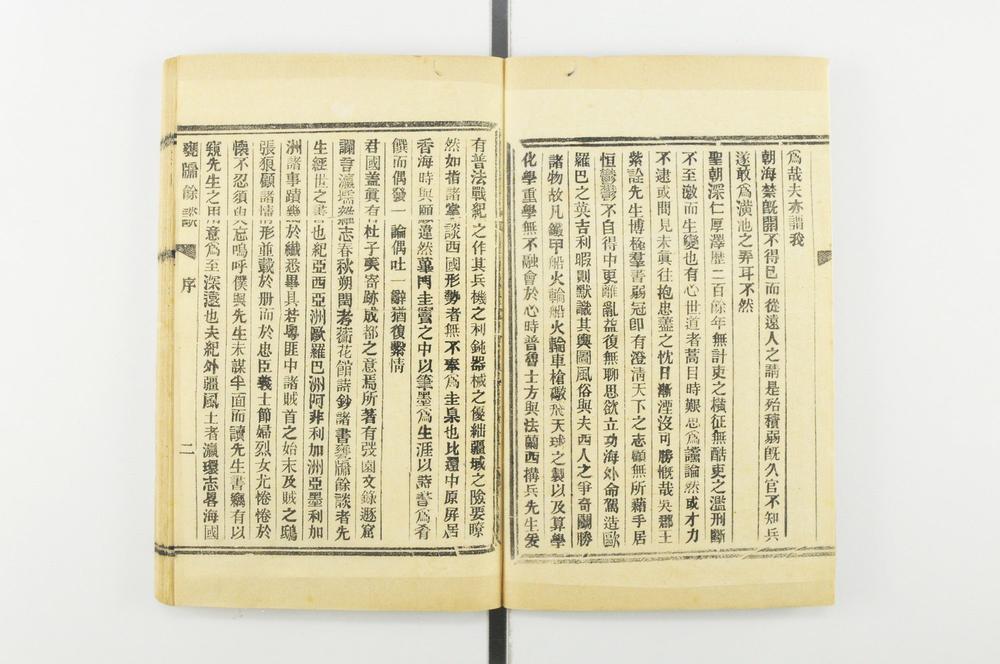 爲哉夫亦謂我
朝海禁旣開不得已而從遠人之請是殆積弱旣久官不知兵
遂敢爲潢池之弄耳不然
聖朝深仁厚澤歷二百餘年無計吏之橫征無酷吏之濫刑斷
不至激而生變也有心世道者蒿目時艱思爲讜論然或才力
不逮或聞見未眞往抱忠藎之忱日漸湮沒可勝慨哉吳郡王
紫詮先生博極羣書弱冠卽有澄淸天下之志顧無所藉手居
恒鬱鬱不自得中更離亂益復無聊思欲立功海外命駕造歐
羅巴之英吉利暇則默識其輿圖風俗與夫西人之爭奇鬬勝
諸物故凡鐵甲船火輪船火輪車槍礮飛天球之製以及算學
化學重學無不融會於心時普魯士方與法蘭西搆兵先生爰
有普法戰紀之作其兵機之利鈍器械之優絀疆域之險要瞭
然如指諸掌談西國形勢者無不奉爲圭臬也比還中原屏居
香海時與願違然蓽門圭竇之中以筆墨爲生涯以詩書爲肴
饌而偶發一論偶吐一辭猶復繫情
君國蓋眞有杜子美寄跡成都之意焉所著有弢園文錄遯窟
讕言瀛壖雜志春秋朔閏考蘅花館詩鈔諸書甕牖餘談者先
生經世之書也紀亞西亞洲歐羅巴洲阿非利加洲亞墨利加
洲諸事蹟幾於纖悉畢具若粵匪中諸賊首之始末及賊之鴟
張狼顧諸情形並載於册而於忠臣義士節婦烈女尤惓惓於
懷不忍須臾忘嗚呼僕與先生未謀半面而讀先生書竊有以
窺先生之用意爲至深遠也夫紀外疆風土者瀛環志畧海國
甕牖餘談 序 二